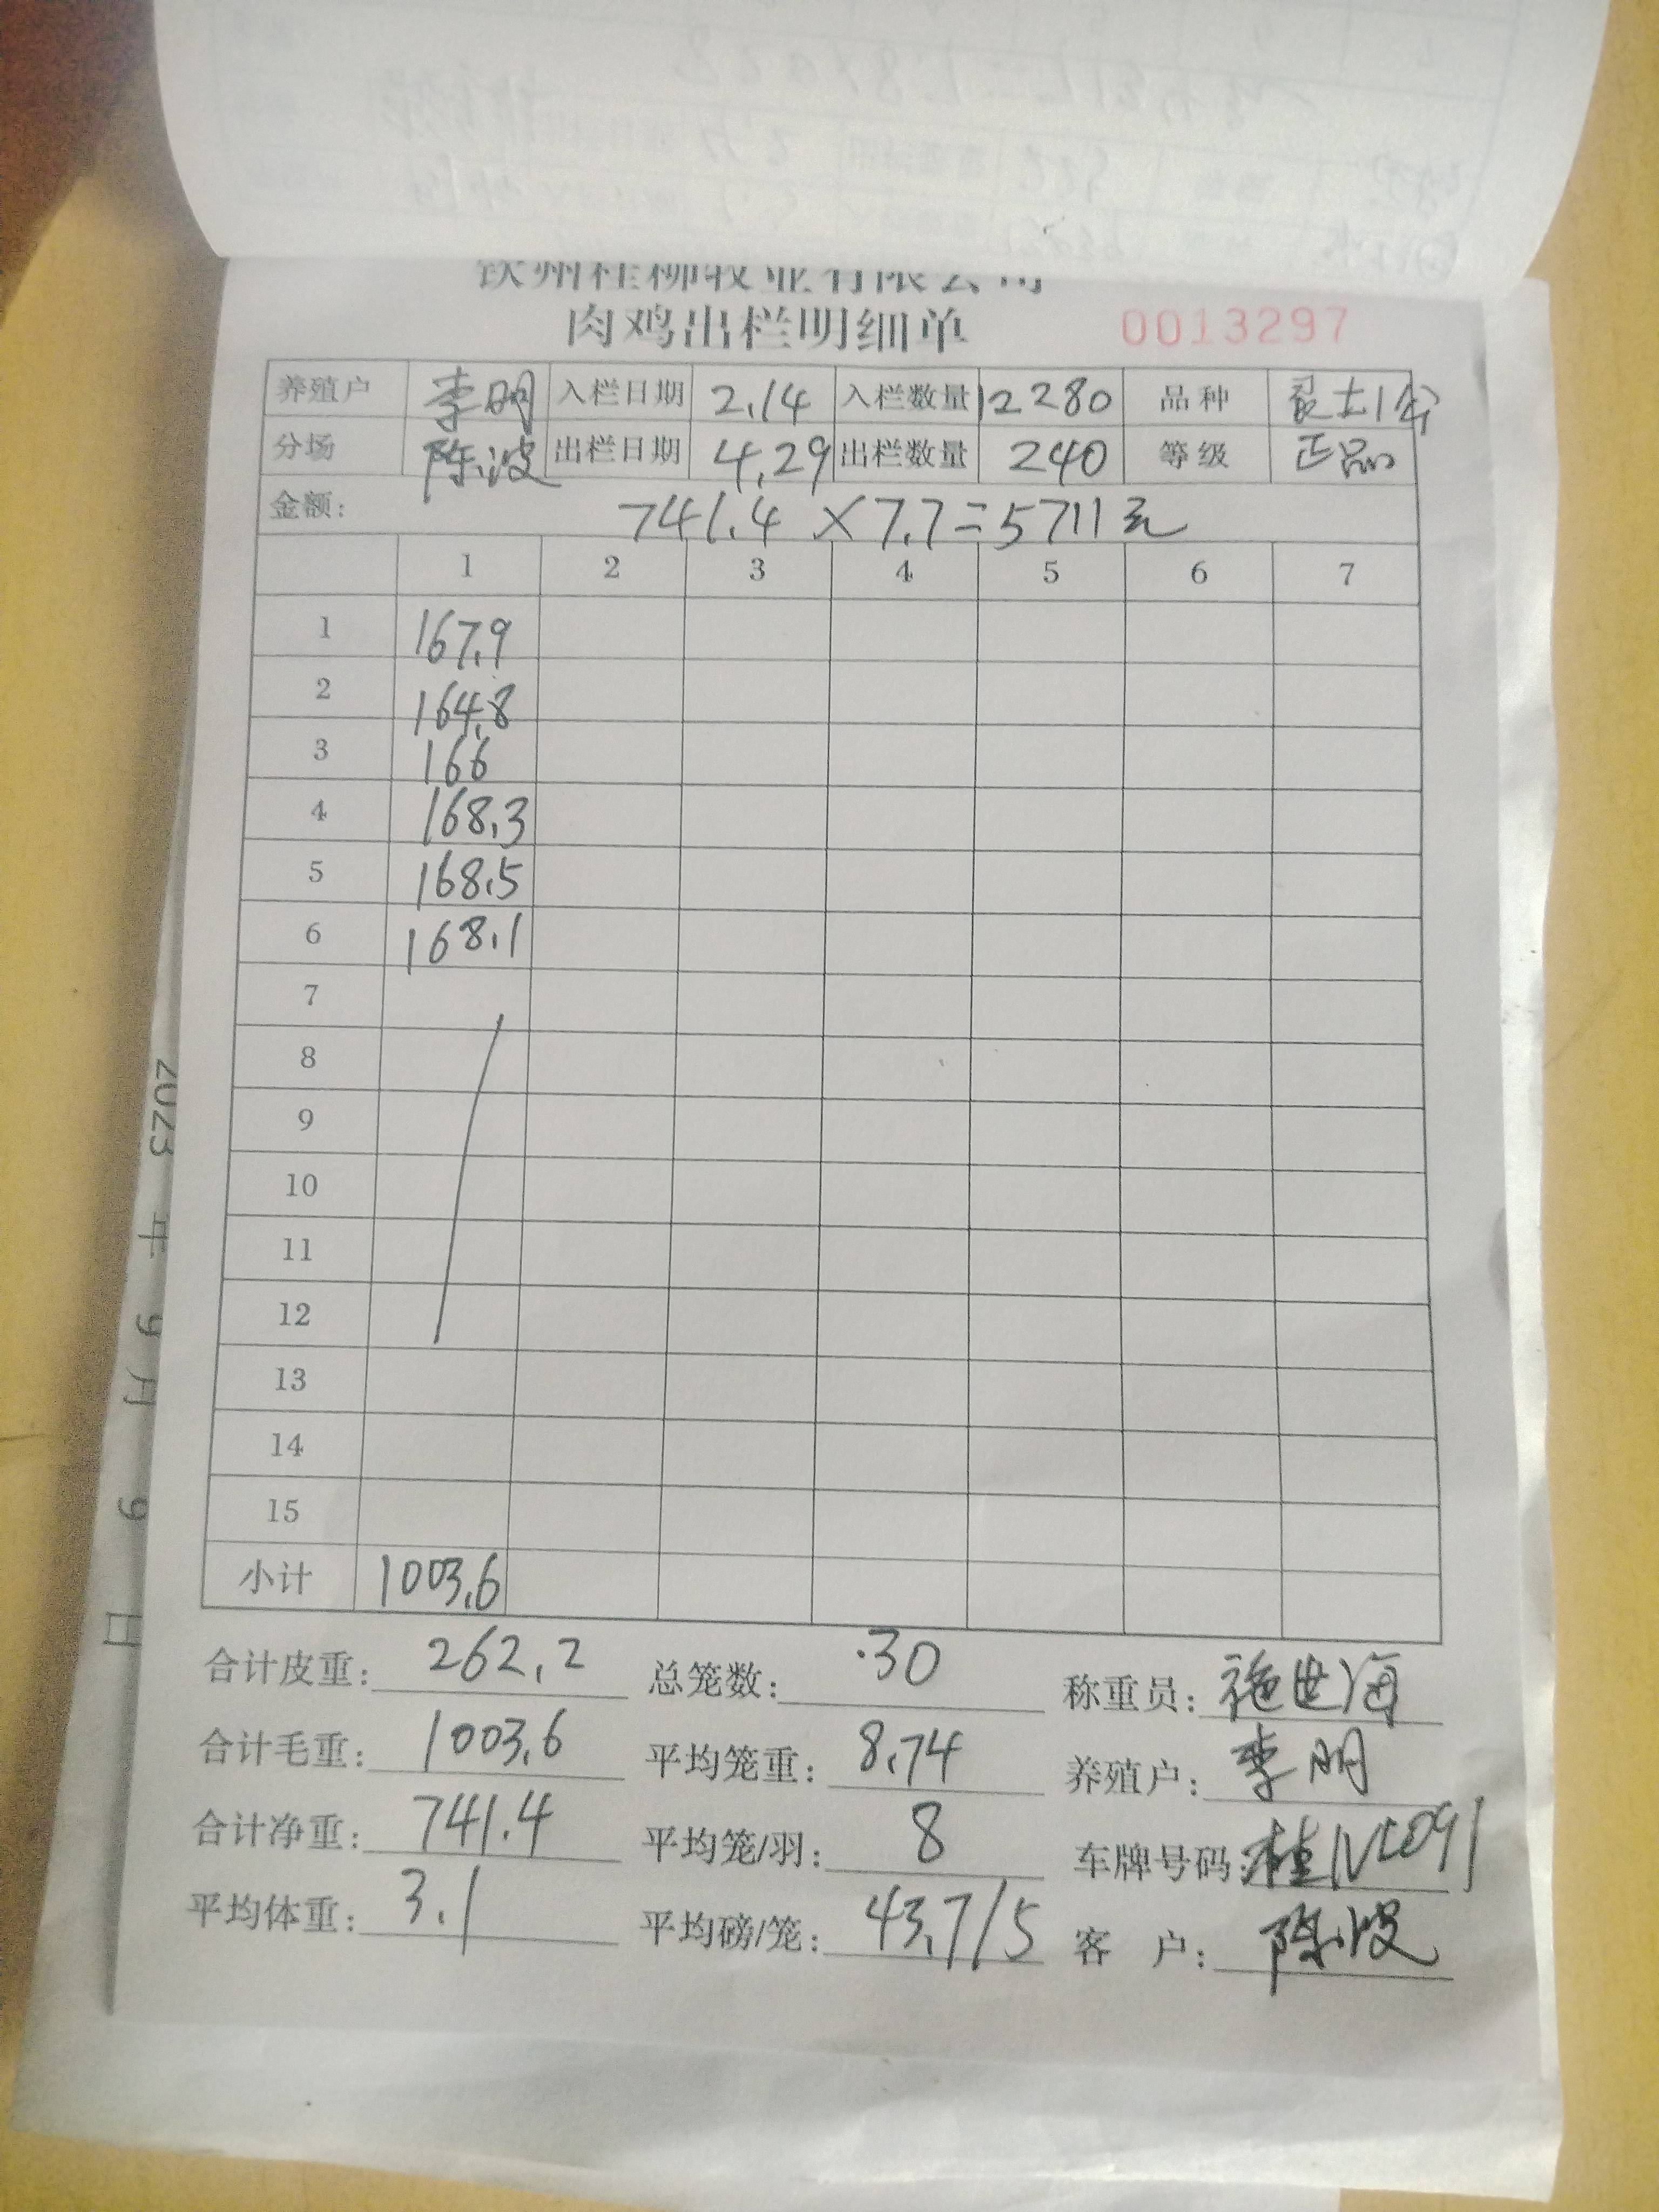 钦州桂柳牧业有限公司
肉鸡出栏明细单 0013297
养殖户 李明 入栏日期 2.14 入栏数量 12280 品种 土1公
分场 陈波 出栏日期 4.29 出栏数量 240 等级 正品
金额: 741.4 × 7.7 = 5711元
1 2 3 4 5 6 7
1 167.9
2 164.8
3 166
4 168.3
5 168.5
6 168.1
7
8
9
10
11
12
13
14
15
小计 1003.6
合计皮重: 262.2 总笼数: 30 称重员: 施世海
合计毛重: 1003.6 平均笼重: 8.74 养殖户: 李明
合计净重: 741.4 平均笼/羽: 8 车牌号码: 桂
平均体重: 3.1 平均磅/笼: 43.7/5 客 户: 陈波
2023 年 9 月 9 日